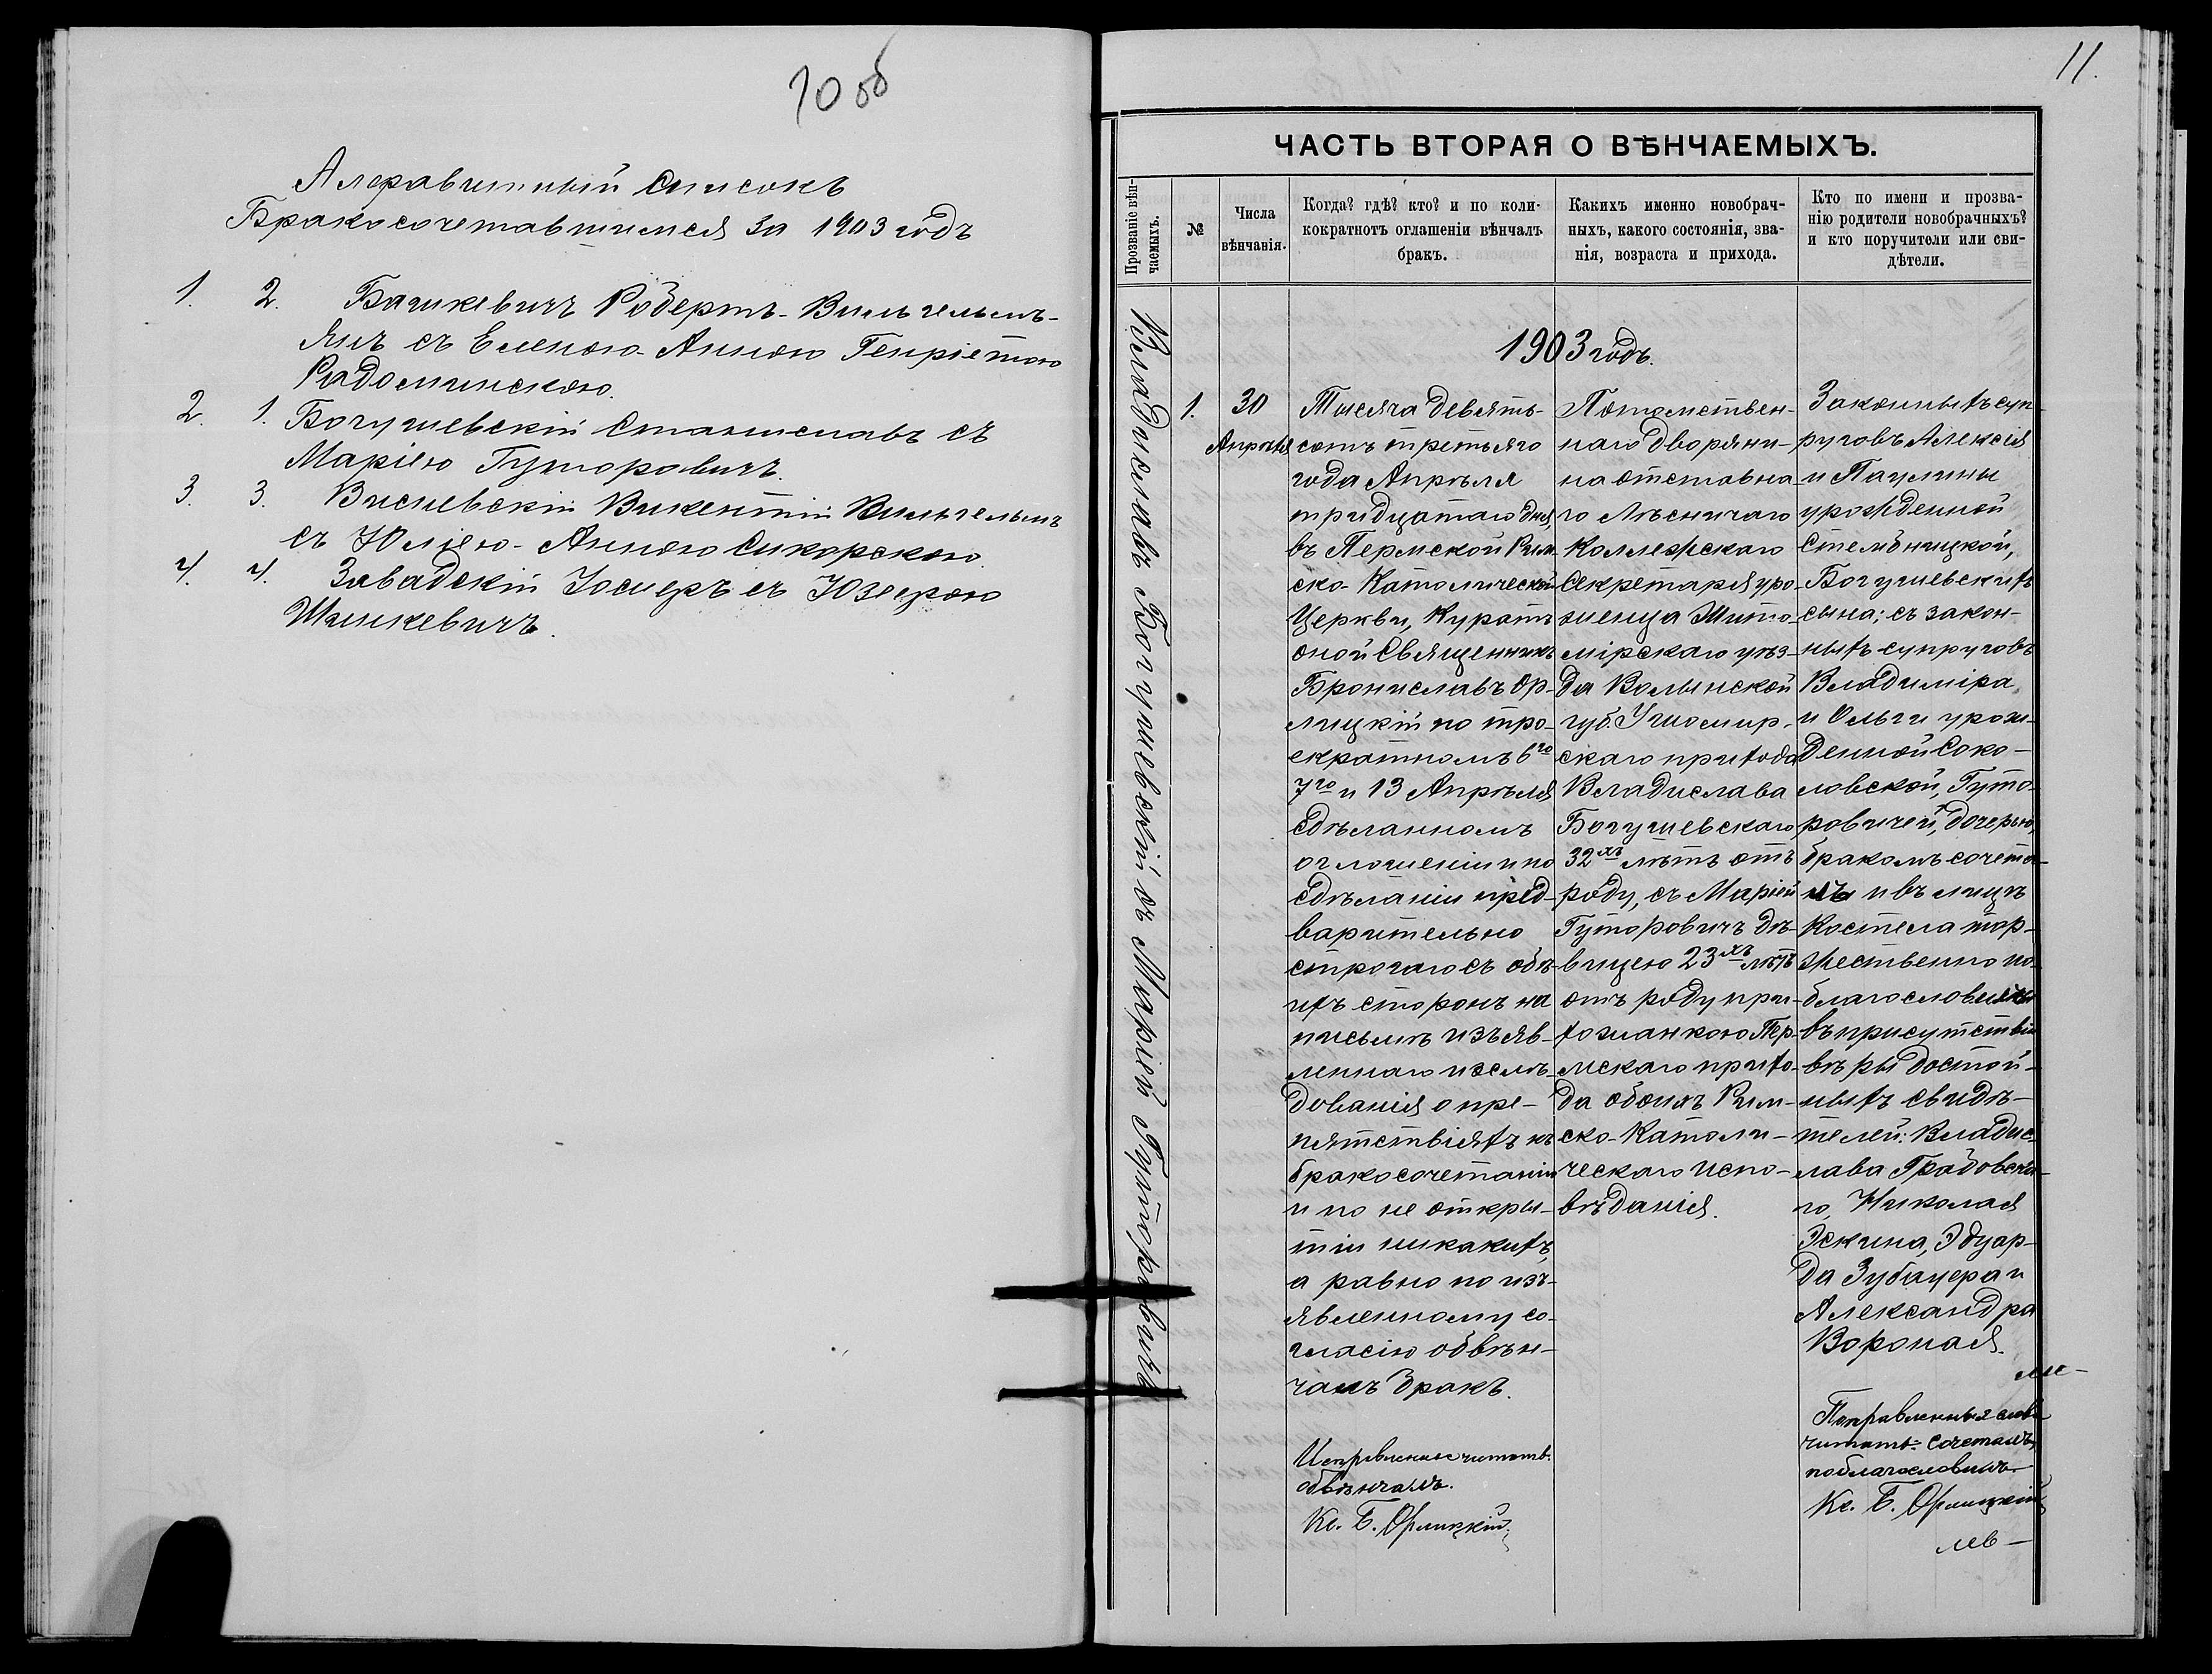 10 об
Алфавитный Списокъ
Бракосочетавшимся за 1903 годъ
1. 2. Башкевичъ Робертъ-Вильгельмъ-
Янъ съ Еленою-Анною Генріетою
Радоминскою.
2. 1. Богушевскій Станиславъ съ
Маріею Гуторовичъ.
3. 3. Висневскій Викентій Вильгельмъ
съ Юліею-Анною Сикорскою.
4. 4. Завадскій Іосифъ съ Юзефою
Шинкевичъ.
11.
ЧАСТЬ ВТОРАЯ О ВѢНЧАЕМЫХЪ.
Прозваніе вѣн-
чаемыхъ.
№
Числа
вѣнчанія.
Когда? гдѣ? кто? и по коли-
кократнотъ оглашеніи вѣнчалъ
бракъ.
Какихъ именно новобрач-
ныхъ, какого состоянія, зва-
нія, возраста и прихода.
Кто по имени и прозва-
нію родители новобрачныхъ?
и кто поручители или сви-
дѣтели.
1903 годъ.
Владиславъ Богушевскій съ Маріей Гуторовичъ
1.
30
Апрѣля
Тысяча девять-
сотъ третьяго
года Апрѣля
тридцатаго дня
въ Пермской Рим-
ско-Католической
Церкви, Куратъ
оной Священникъ
Брониславъ Ор-
лицкій по тро-
екратномъ 6го
7го и 13 Апрѣля
сдѣланномъ
оглошеніи и по
сдѣланіи пред-
варительно
строгаго съ обѣ-
ихъ сторонъ на
письмѣ изъяв-
леннаго изслѣ-
дованія о пре-
пятствіяхъ къ
бракосочетанію
и по не откры-
тіи никакихъ,
а равно по изъ-
явленному со-
гласію обвѣн-
чалъ бракъ.
Исправленное читать:
обвѣнчалъ.
Кс. Б. Орлицкій
Потомствен-
наго дворяни-
на отставна-
го Лѣсничаго
Коллежскаго
Секретаря уро-
женца Жито-
мірскаго уѣз-
да Волынской
губ. Ушомир-
скаго прихода
Владислава
Богушевскаго
32хъ лѣтъ отъ
роду, съ Маріей
Гуторовичъ дѣ-
вицею 23хъ лѣтъ
отъ роду при-
хожанкою Пер-
мскаго прихо-
да обоихъ Рим-
ско-Католи-
ческаго испо-
вѣданія.
Законныхъ суп-
руговъ Алексія
и Паулины
урожденной
Стембницкой,
Богушевскихъ
сына; съ закон-
ныхъ супруговъ
Владиміра
и Ольги урож-
денной Соко-
ловской, Гуто-
ровичей, дочерью,
бракомъ сочета-
лъ и въ лицѣ
Костела тор-
жественно по-
благословилъ
въ присутствіи
вѣры достой-
ныхъ свидѣ-
телей: Владис-
лава Градовска-
го, Николая
Эскина, Эдуар-
да Зубацера и
Александра
Вороная.
Поправленныя слова
читать: сочеталъ,
поблагословилъ.
Кс. Б. Орлицкій